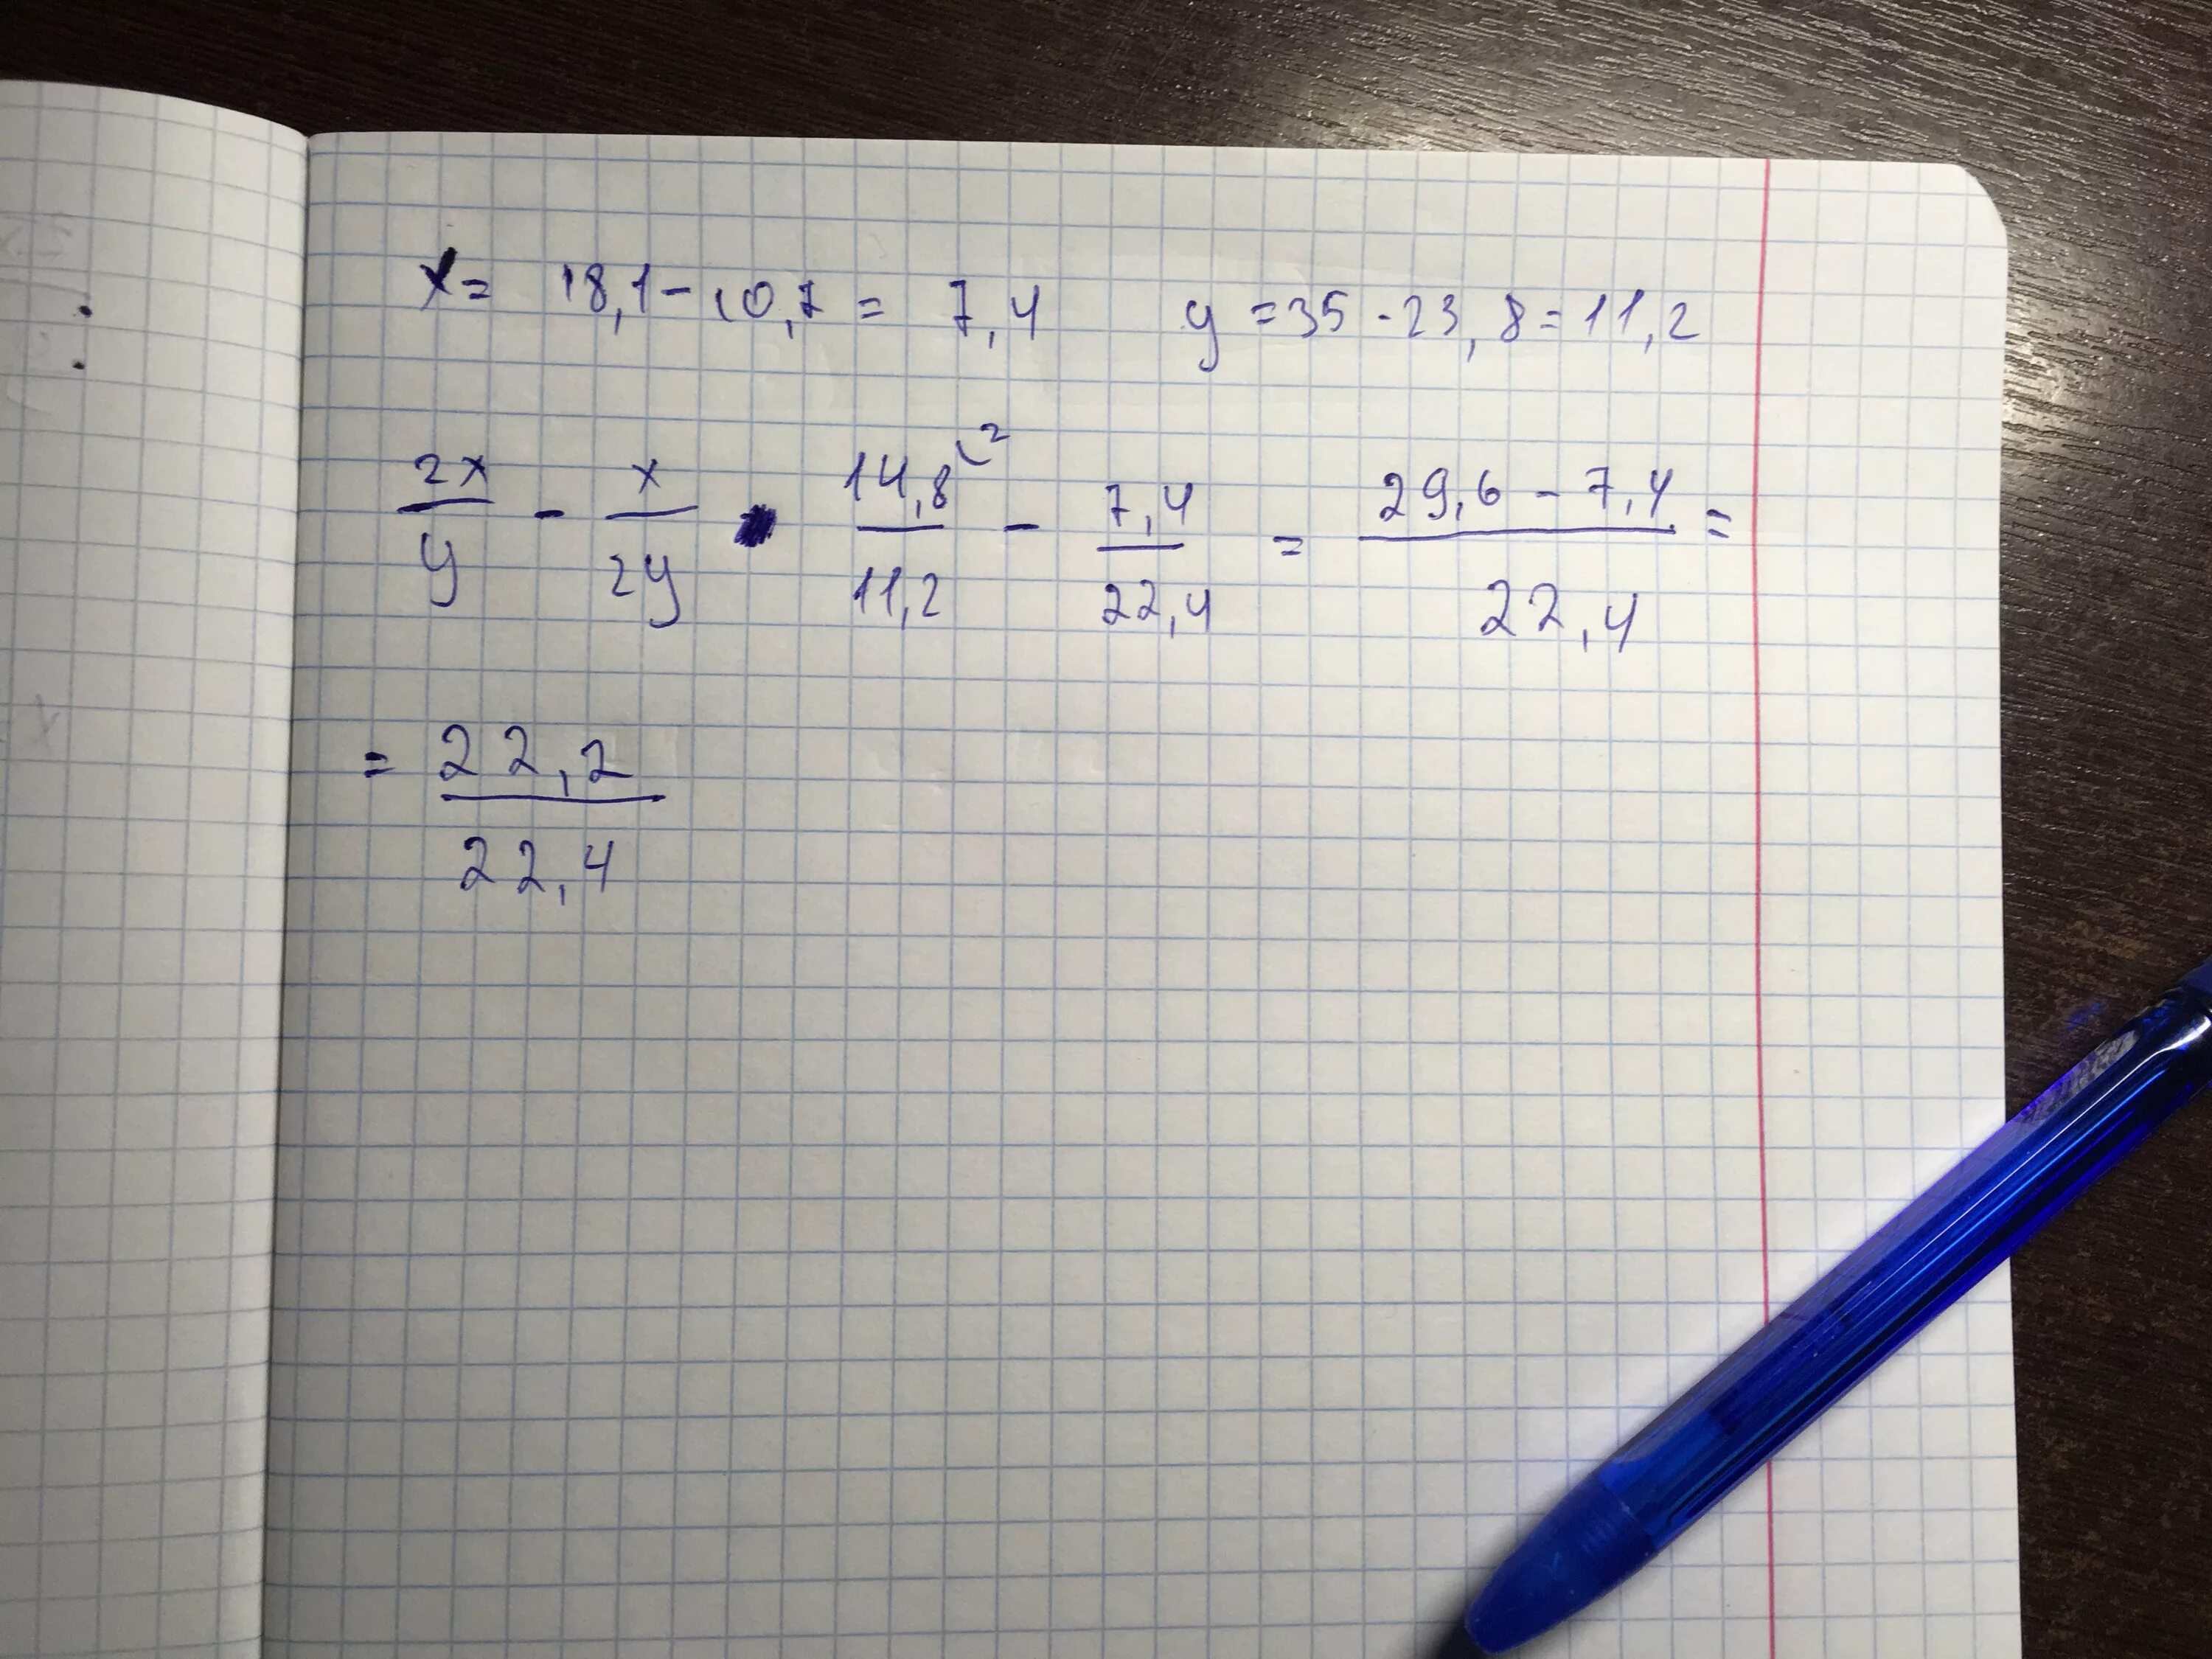 x = 18,1 - 10,7 = 7,4 y = 35 - 23,8 = 11,2
2x/y - x/2y 14,8/11,2 (2 - 7,4/22,4 = 29,6 - 7,4/22,4 =
= 22,2/22,4